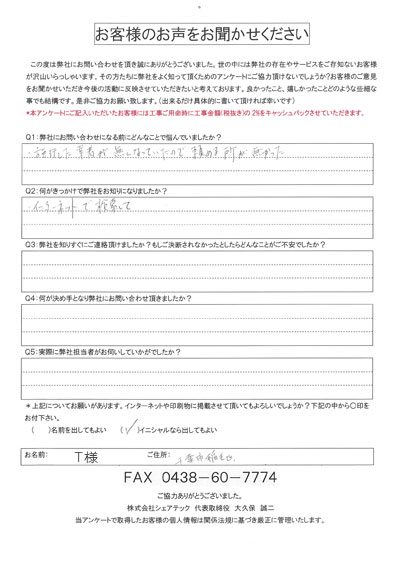 お客様のお声をお聞かせください
この度は弊社にお問い合わせを頂き誠にありがとうございました。世の中には弊社の存在やサービスをご存知ないお客様
が沢山いらっしゃいます。その方たちに弊社をよく知って頂くためのアンケートにご協力頂けないでしょうか?お客様のご意見
をお聞かせいただき今後の活動に反映させていただきたいと考えております。良かったこと、嬉しかったことどのような些細な
事でも結構です。是非ご協力お願い致します。(出来るだけ具体的に書いて頂ければ幸いです)
*本アンケートにご記入いただいたお客様には工事ご用命時に工事金額(税抜き)の2%をキャッシュバックさせていただきます。
Q1:弊社にお問い合わせになる前にどんなことで悩んでいましたか?
・施行した業者が無くなっていたので頼める所が無かった
Q2:何がきっかけで弊社をお知りになりましたか?
・インターネットで検索して
Q3:弊社を知りすぐにご連絡頂けましたか?もしご決断されなかったとしたらどんなことがご不安でしたか?
Q4:何が決め手となり弊社にお問い合わせ頂きましたか?
Q5:実際に弊社担当者がお伺いしていかがでしたか?
*上記についてお願いがあります。インターネットや印刷物に掲載させて頂いてもよろしいでしょうか?下記の中から〇印を
お付下さい。
( )名前を出してもよい (✓)イニシャルなら出してもよい
お名前: T様 ご住所:
FAX 0438-60-7774
ご協力ありがとうございました。
株式会社シェアテック 代表取締役 大久保 誠二
当アンケートで取得したお客様の個人情報は関係法規に基づき厳正に管理いたします。